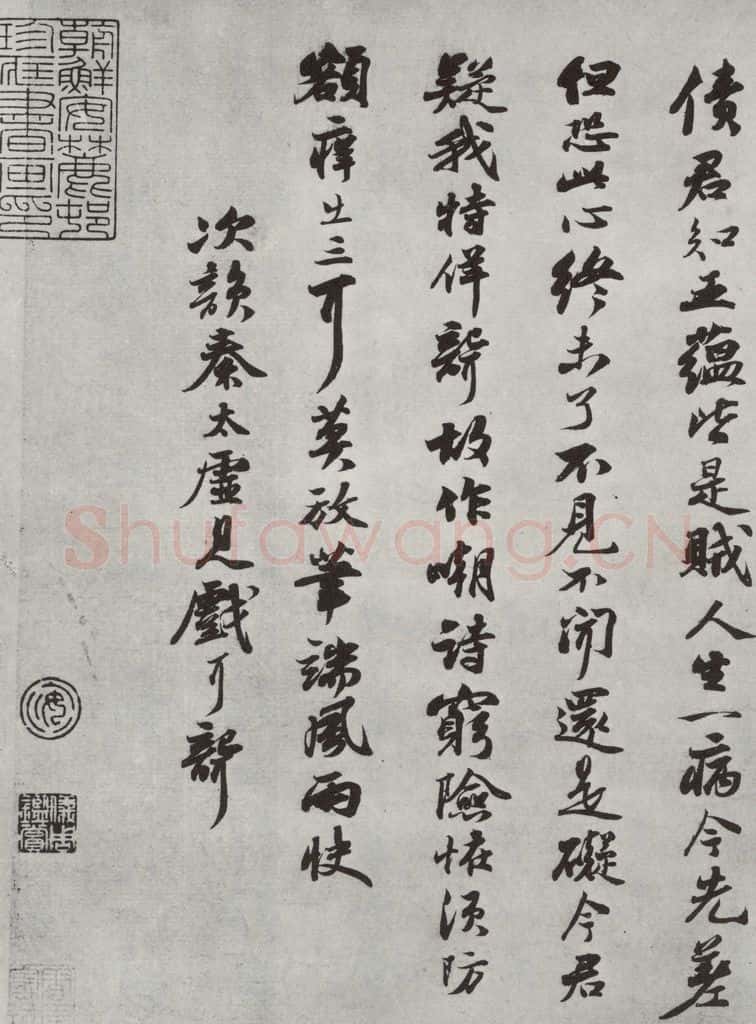 債君知五蘊皆是賊人生一病今先差
但恐此心終未了不見不聞還是礙今君
疑我特佯聾故作嘲詩窮險恠須防
額痒出三耳莫放筆端風雨快
次韻秦太虛見戲耳聾
朝鮮安麓邨
珍藏書畫印
儀周
鑑賞
Shufawang.CN